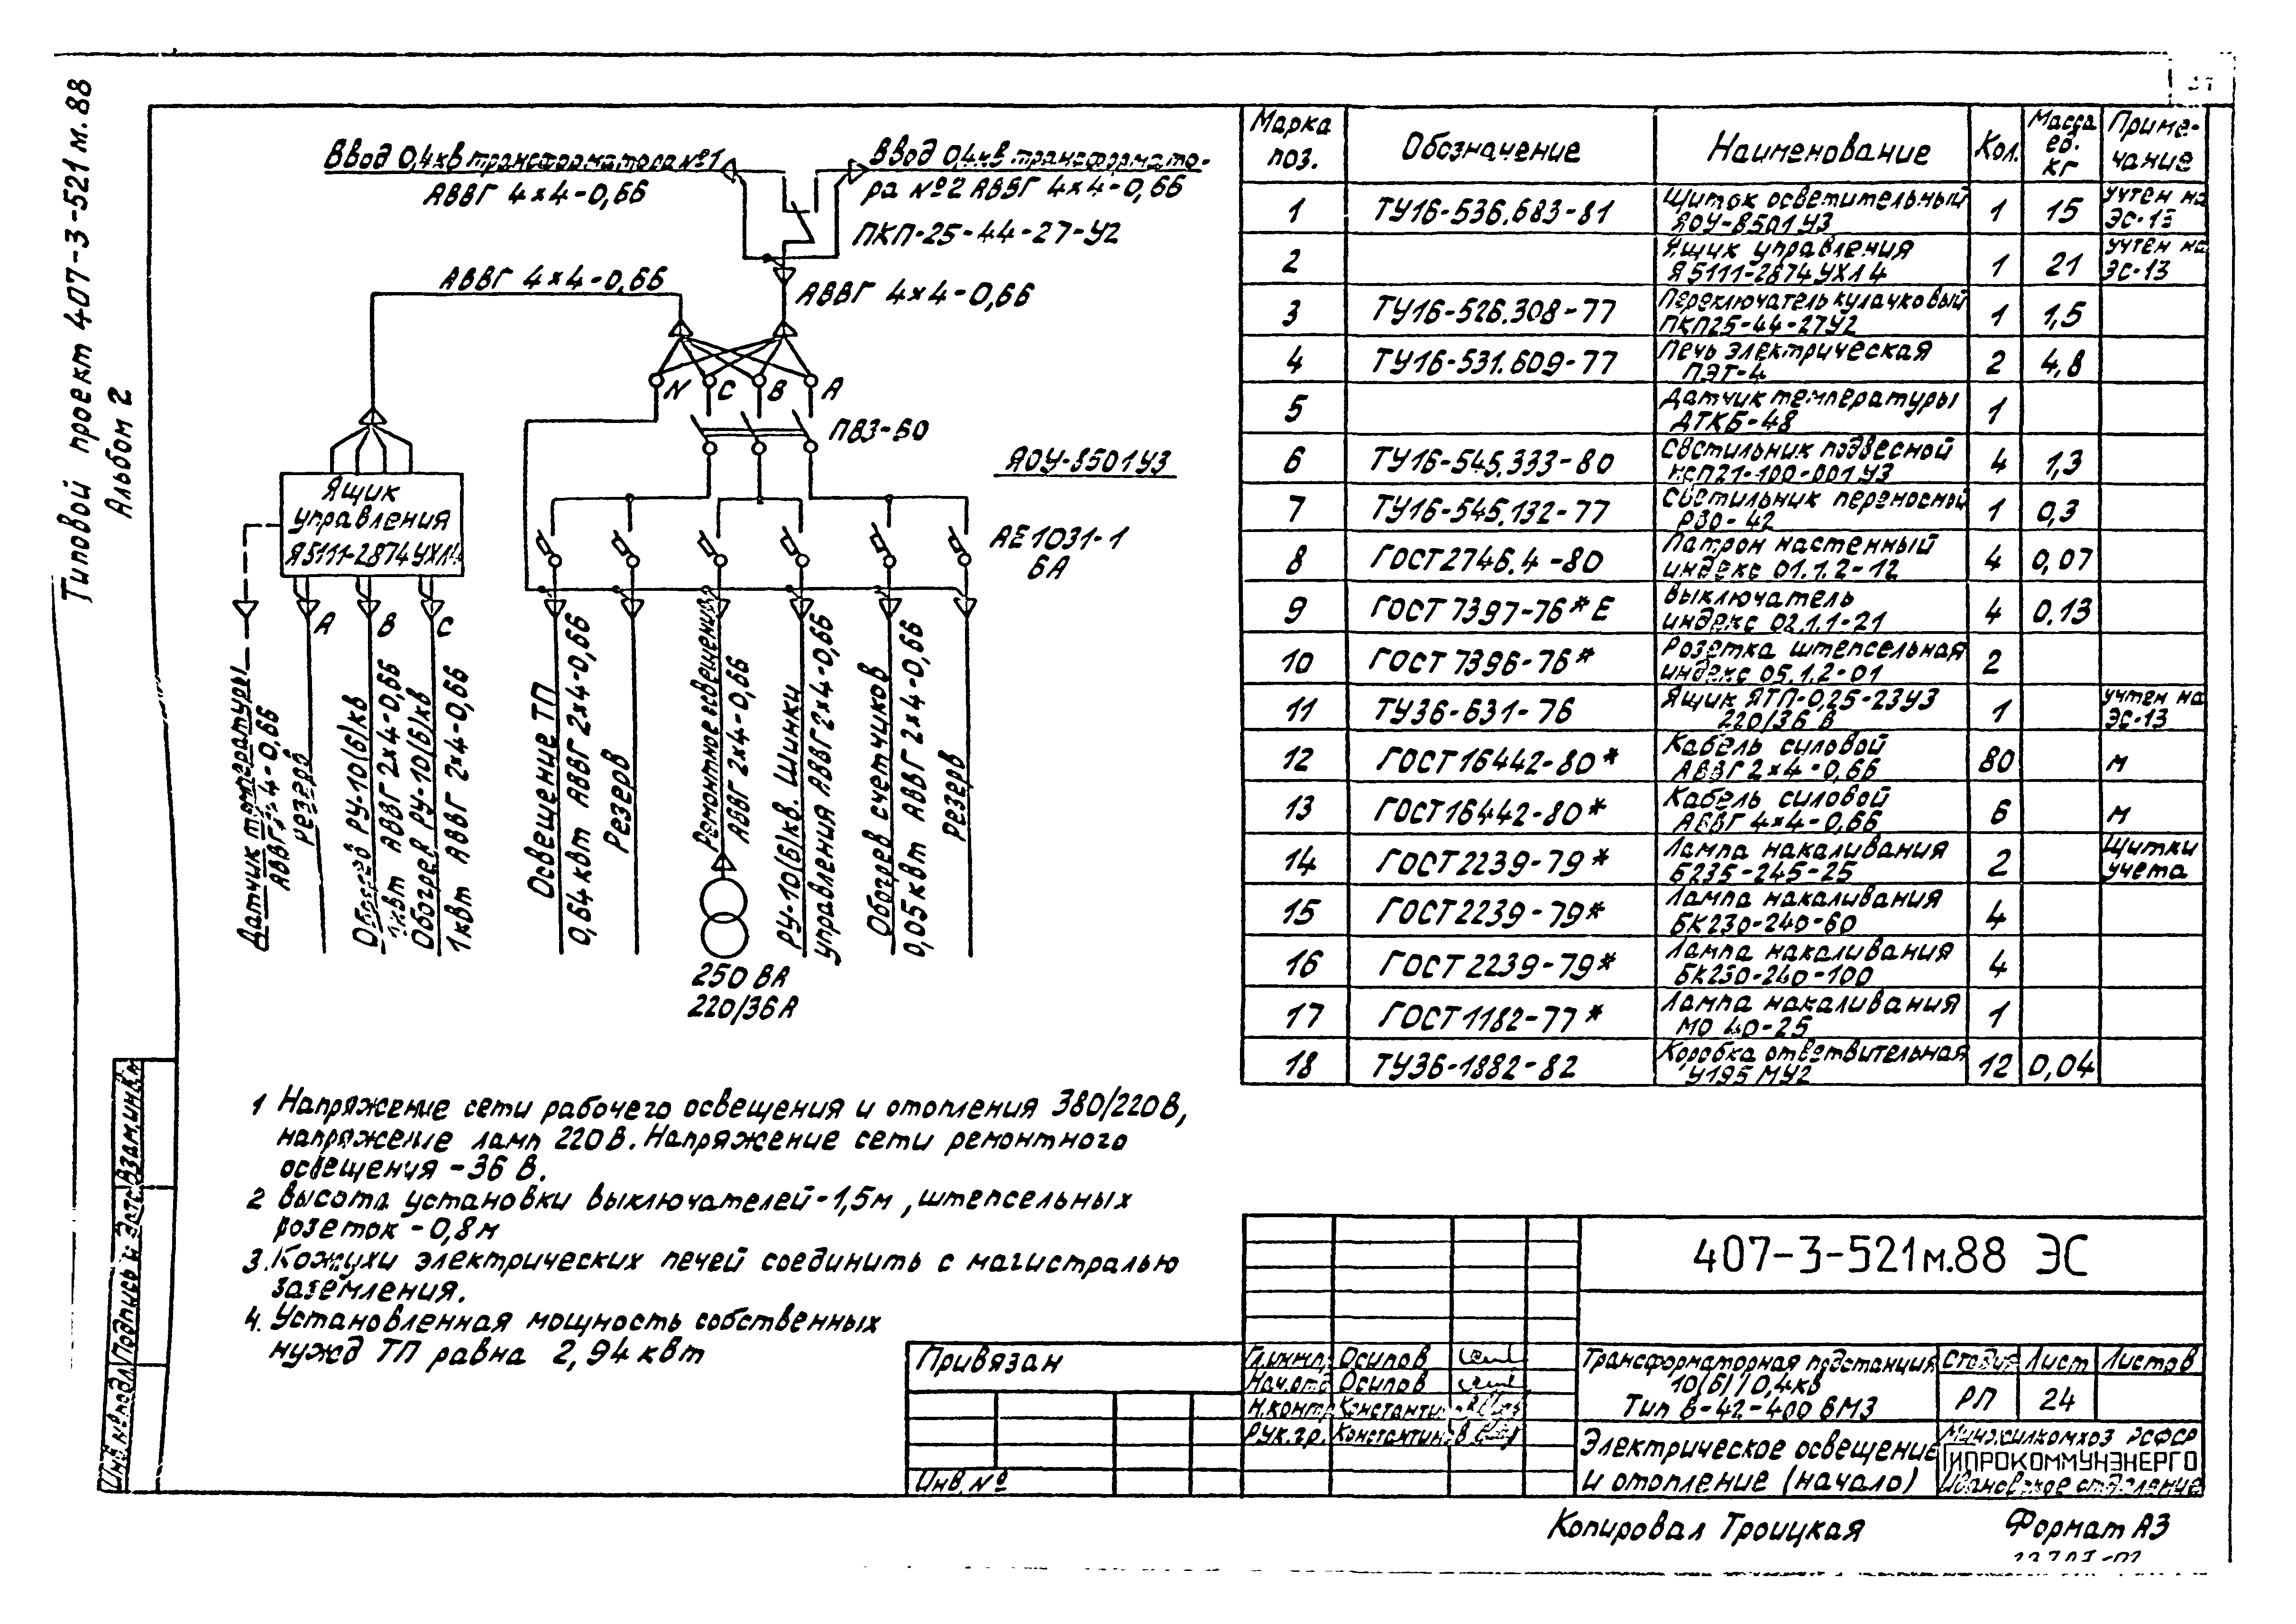 Типовой проект 407-3-521м.88
Альбом 2
Ввод 0,4кв трансформатора №1
АВВГ 4×4-0,66
Ввод 0,4кв трансформато-
ра №2 АВВГ 4×4-0,66
ПКП-25-44-27-У2
АВВГ 4×4-0,66
АВВГ 4×4-0,66
N C B A
ПВ3-60
ЯОУ-8501У3
Ящик
управления
Я5111-2874УХЛ4
АЕ1031-1
6А
A B C
Датчик температуры
АВВГ 4-0,66
резерв
Обогрев РУ-10(6)кв
1квт АВВГ 2×4-0,66
Обогрев РУ-10(6)кв
1квт АВВГ 2×4-0,66
Освещение ТП
0,64квт АВВГ 2×4-0,66
Резерв
Ремонтное освещение
АВВГ 2×4-0,66
250 ВА
220/36А
РУ-10(6)кв. Шинки
управления АВВГ 2×4-0,66
Обогрев счетчиков
0,05квт АВВГ 2×4-0,66
Резерв
Марка поз. Обозначение Наименование Кол. Масса ед. кг Приме-чание
1 ТУ16-536.683-81 Щиток осветительный ЯОУ-8501У3 1 15 учтен на ЭС-13
2 Ящик управления Я5111-2874УХЛ4 1 21 учтен на ЭС-13
3 ТУ16-526.308-77 Переключатель кулачковый ПКП25-44-27У2 1 1,5
4 ТУ16-531.609-77 Печь электрическая ПЭТ-4 2 4,8
5 Датчик температуры ДТКБ-48 1
6 ТУ16-545.333-80 Светильник подвесной НСП21-100-001У3 4 1,3
7 ТУ16-545.132-77 Светильник переносной РВО-42 1 0,3
8 ГОСТ2746.4-80 Патрон настенный индекс 01.1.2-12 4 0,07
9 ГОСТ 7397-76*Е Выключатель индекс 02.1.1-21 4 0.13
10 ГОСТ 7396-76* Розетка штепсельная индекс 05.1.2-01 2
11 ТУ36-631-76 Ящик ЯТП-0,25-23У3 220/36 В 1 учтен на ЭС-13
12 ГОСТ16442-80* Кабель силовой АВВГ 2×4-0,66 80 м
13 ГОСТ16442-80* Кабель силовой АВВГ 4×4-0,66 6 м
14 ГОСТ2239-79* Лампа накаливания Б235-245-25 2 Щитки учета
15 ГОСТ2239-79* Лампа накаливания БК230-240-60 4
16 ГОСТ2239-79* Лампа накаливания БК230-240-100 4
17 ГОСТ1182-77* Лампа накаливания МО 40-25 1
18 ТУ36-1882-82 Коробка ответвительная У195 МУ2 12 0,04
1 Напряжение сети рабочего освещения и отопления 380/220В,
напряжение ламп 220 В. Напряжение сети ремонтного
освещения - 36 В.
2 Высота установки выключателей-1,5м, штепсельных
розеток - 0,8м
3. Кожухи электрических печей соединить с магистралью
заземления.
4. Установленная мощность собственных
нужд ТП равна 2,94 квт
Взам.инв.№
Подпись и дата
Инв.№ подл.
Привязан
Инв. №
407-3-521м.88 ЭС
Гл.инж.пр. Осипов
Нач.отд Осипов
Н.контр. Константинов
Рук.гр. Константинов
Трансформаторная подстанция
10(6)/0,4кв
Тип В-42-400 ВМ3
Стадия Лист Листов
РП 24
Электрическое освещение
и отопление (начало)
Минжилкомхоз РСФСР
ГИПРОКОММУНЭНЕРГО
Ивановское отделение
Копировал Троицкая
Формат А3